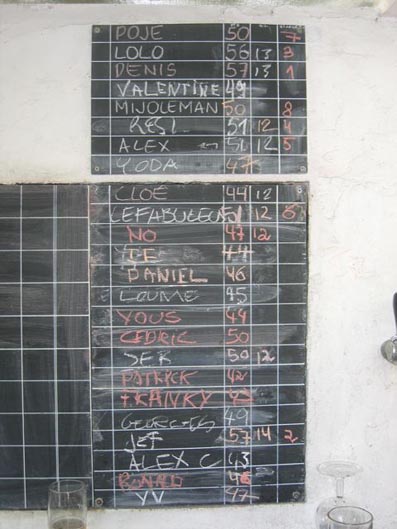 POJE 50 7
LOLO 56 13 3
DENIS 57 13 1
VALENTINE 49
MIJOLEMAN 50 8
RESL 51 12 4
ALEX 51 12 5
YODA 47
CLOÉ 44 12
LEFABULEUX 51 12 6
NO 47 12
JE 44
DANIEL 46
LOUME 45
YOUS 44
CEDRIC 50
SEB 50 12
PATRICK 42
FRANKY
GEORGES 49
JEF 57 14 2
ALEX C 43
46
YV 47